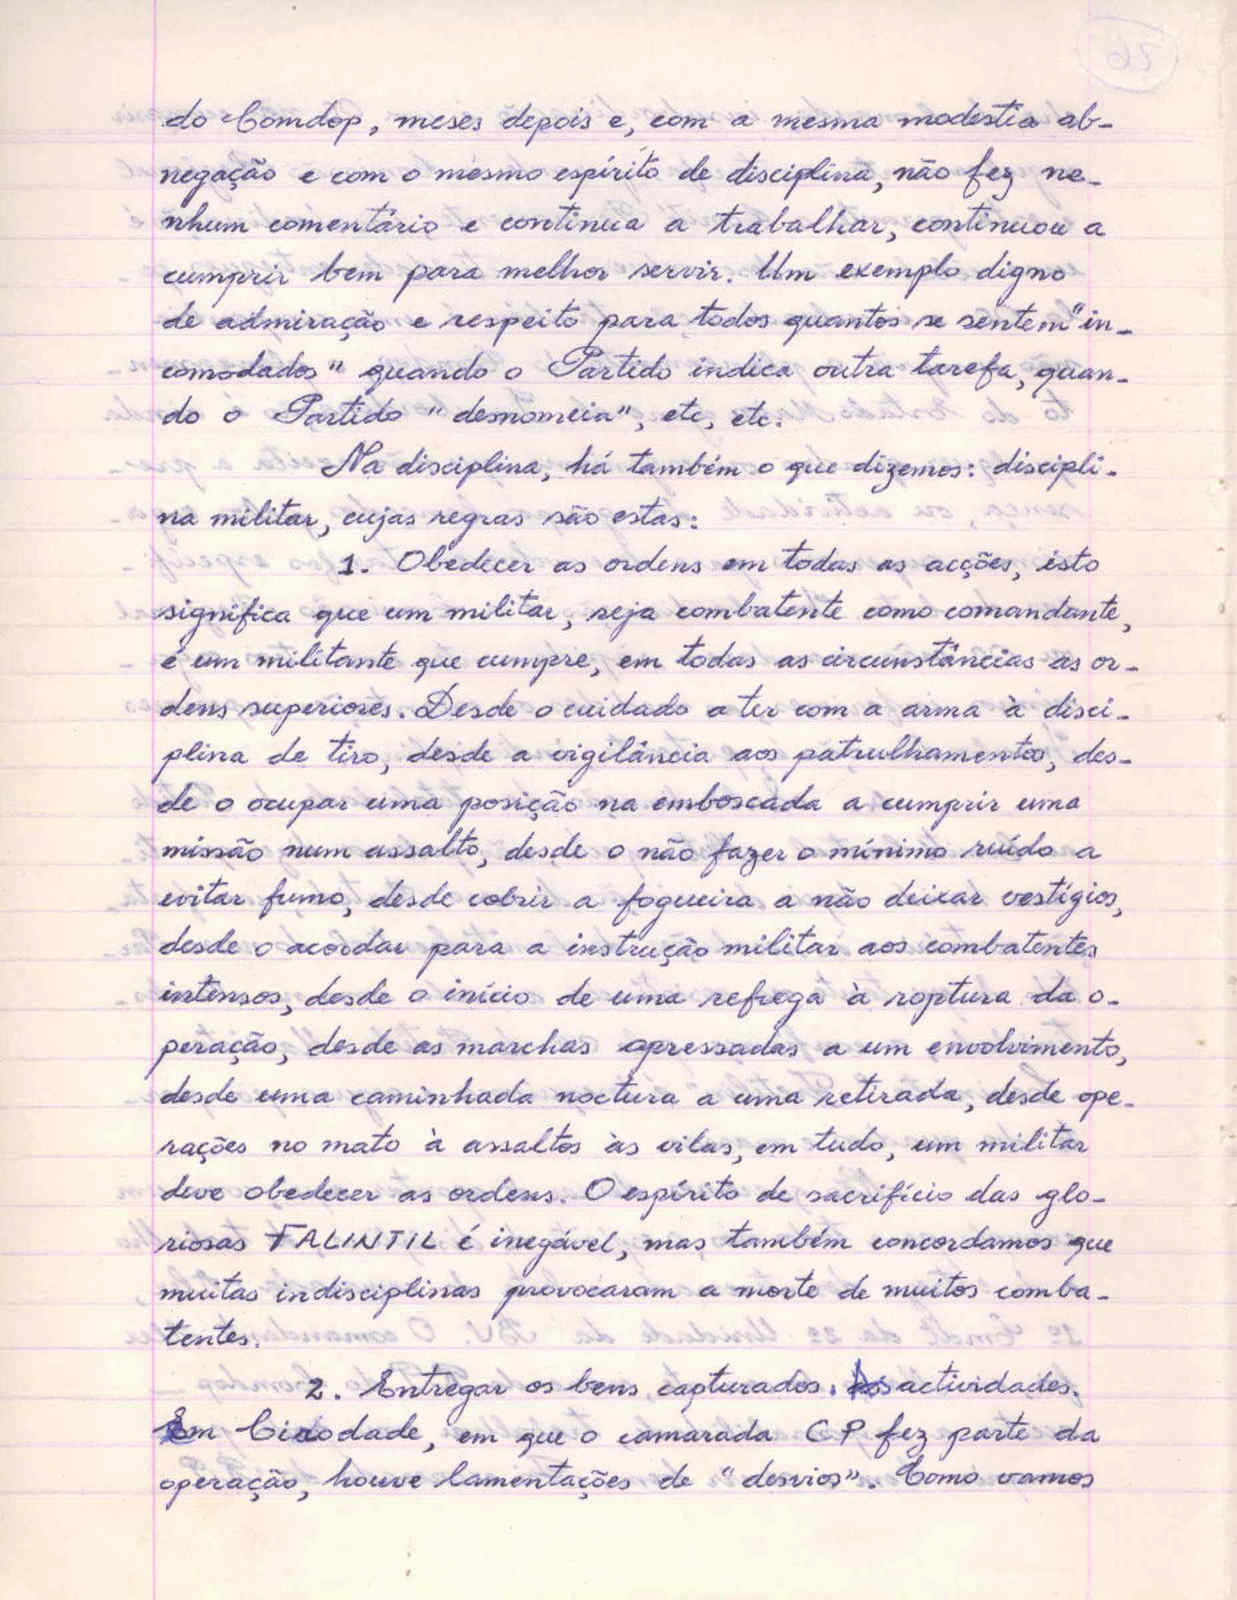 do Comdop, meses depois e, com a mesma modestia ab-
negação e com o mesmo espírito de disciplina, não fez ne-
nhum comentário e continua a trabalhar, continuou a
cumprir bem para melhor servir. Um exemplo digno
de admiração e respeito para todos quantos se sentem "in-
comodados" quando o Partido indica outra tarefa, quan-
do o Partido "desnomeia", etc, etc.
Na disciplina, há também o que dizemos: discipli-
na militar, cujas regras são estas:
1. Obedecer as ordens em todas as acções, isto
significa que um militar, seja combatente como comandante,
é um militante que cumpre, em todas as circunstâncias as or-
dens superiores. Desde o cuidado a ter com a arma à disci-
plina de tiro, desde a vigilância aos patrulhamentos, des-
de o ocupar uma posição na emboscada a cumprir uma
missão num assalto, desde o não fazer o mínimo ruído a
evitar fumo, desde cobrir a fogueira a não deixar vestígios,
desde o acordar para a instrução militar aos combatentes
intensos, desde o início de uma refrega à roptura da o-
peração, desde as marchas apressadas a um envolvimento,
desde uma caminhada noctura a uma retirada, desde ope-
rações no mato à assaltos às vilas, em tudo, um militar
deve obedecer as ordens. O espírito de sacrifício das glo-
riosas FALINTIL é inegável, mas também concordamos que
muitas indisciplinas provocaram a morte de muitos comba-
tentes.
2. Entregar os bens capturados. As actividades.
Em, em que o camarada CP fez parte da
operação, houve lamentações de "desvios". Como vamos